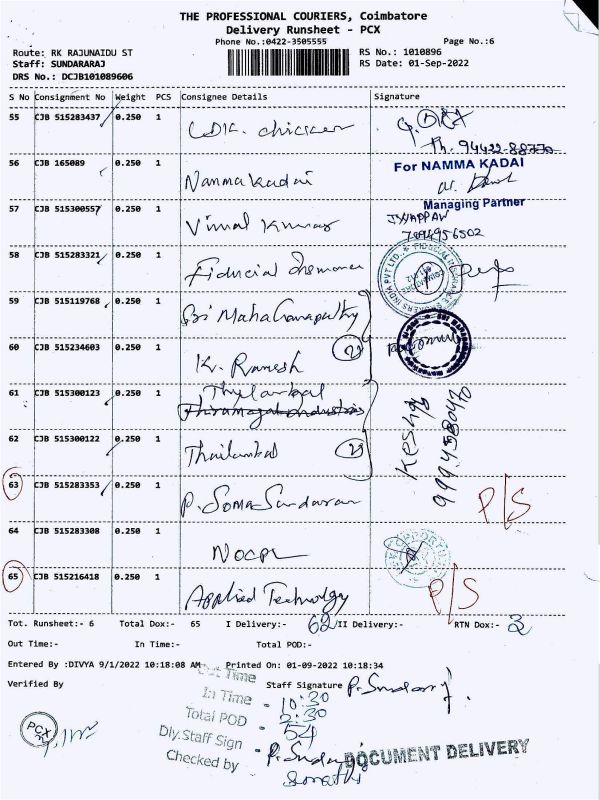 THE PROFESSIONAL COURIERS, Coimbatore
Delivery Runsheet - PCX
Phone No.:0422-3505555 Page No.:6
Route: RK RAJUNAIDU ST RS No.: 1010896
Staff: SUNDARARAJ RS Date: 01-Sep-2022
DRS No.: DCJB101089606
S No Consignment No Weight PCS Consignee Details Signature
55 CJB 515283437 0.250 1
Ph. 94422-88770
56 CJB 165089 0.250 1 Nammakadai
For NAMMA KADAI
Managing Partner
57 CJB 515300557 0.250 1 Vimal Kumar
7894956502
58 CJB 515283321 0.250 1 Fiducial Insurance
59 CJB 515119768 0.250 1 Sri MahaGanapathy
60 CJB 515234603 0.250 1 K. Ramesh
61 CJB 515300123 0.250 1 Thylankal
62 CJB 515300122 0.250 1 Thailambal
63 CJB 515283353 0.250 1 P. SomaSundaram P/S
64 CJB 515283308 0.250 1 NOCPL
65 CJB 515216418 0.250 1 Applied Technology P/S
Tot. Runsheet:- 6 Total Dox:- 65 I Delivery:- 62 II Delivery:- RTN Dox:- 3
Out Time:- In Time:- Total POD:-
Entered By :DIVYA 9/1/2022 10:18:08 AM Printed On: 01-09-2022 10:18:34
Verified By Staff Signature
Out Time
In Time - 10:30
Total POD - 2:30
Dly.Staff Sign - 54
Checked by
PCX
DOCUMENT DELIVERY